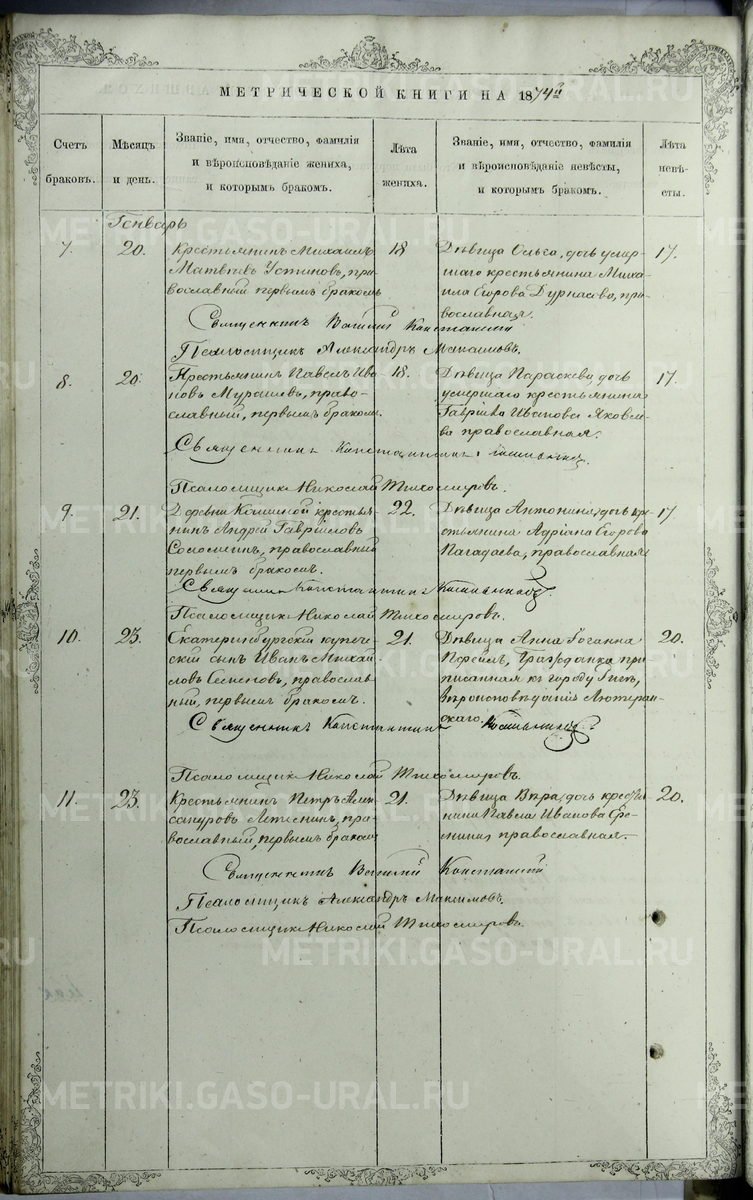 МЕТРИЧЕСКОЙ КНИГИ НА 1874й
Счетъ браковъ.
Мѣсяцъ и день.
Званіе, имя, отчество, фамилія
и вѣроисповѣданіе жениха,
и которымъ бракомъ.
Лѣта жениха.
Званіе, имя, отчество, фамилія
и вѣроисповѣданіе невѣсты,
и которымъ бракомъ.
Лѣта невѣ-
сты.
Генварь
7. 20.
Крестьянинъ Михаилъ
Матвѣевъ Устиновъ, пра-
вославный первымъ бракомъ
18
Дѣвица Ольга, дочь умер-
шаго крестьянина Миха-
ила Егорова Дурнасова, пра-
вославная.
17.
Священникъ Василій
Псаломщикъ Александръ Максимовъ.
8. 20.
Крестьянинъ Павелъ Ива-
новъ Мурашевъ, право-
славный, первымъ бракомъ.
18.
Дѣвица Параскева, дочь
умершаго крестьянина
Гавріила Иванова Яковле-
ва православная.
17.
Священникъ Константинъ
Псаломщикъ Николай Тихомировъ.
9. 21.
Деревни крестья-
нинъ Андрей Гавріиловъ
православный
первымъ бракомъ.
22.
Дѣвица Антонина, дочь кре-
стьянина Адріана Егорова
Пагадаева, православная
17
Священникъ Константинъ
Псаломщикъ Николай Тихомировъ.
10. 23.
Екатеринбургскій купече-
скій сынъ Иванъ Михай-
ловъ Семеновъ, православ-
ный, первымъ бракомъ.
21.
Дѣвица Анна Іоганна
Гражданка при-
писанная къ городу Ригѣ,
Вѣроисповѣданія Лютеран-
скаго.
20.
Священникъ Константинъ
Псаломщикъ Николай Тихомировъ.
11. 23.
Крестьянинъ Петръ Алек-
сандровъ Летненинъ, пра-
вославный, первымъ бракомъ
21.
Дѣвица Вѣра, дочь крестья-
нина Павла Иванова Ере-
мина православная.
20.
Священникъ Василій
Псаломщикъ Александръ Максимовъ.
Псаломщикъ Николай Тихомировъ.
METRIKI.GASO-URAL.RU